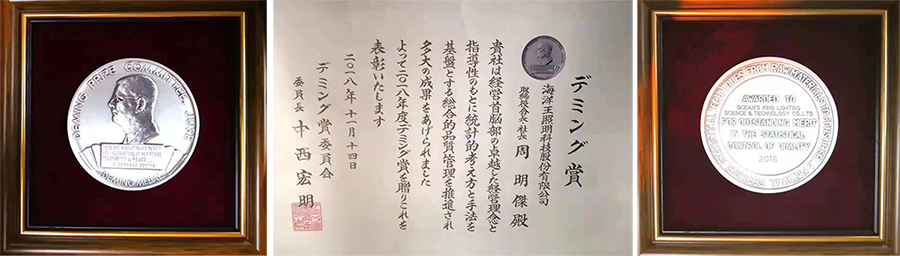 DEMING PRIZE COMMITTEE, JUSE
DEMING MEDAL
デミング賞
海洋王照明科技股份有限公司
取締役会長・社長 周 明傑 殿
貴社は経営首脳部の卓越した経営理念と
指導性のもとに統計的考え方と手法を
基盤とする総合的品質管理を推進され
多大の成果をあげられました
よって二〇一八年度デミング賞を贈りこれを
表彰いたします
二〇一八年十一月十四日
デミング賞委員会
委員長 中西宏明
AWARDED TO
OCEAN'S KING LIGHTING
SCIENCE & TECHNOLOGY CO., LTD
FOR OUTSTANDING MERIT
IN THE STATISTICAL
CONTROL OF QUALITY
2018